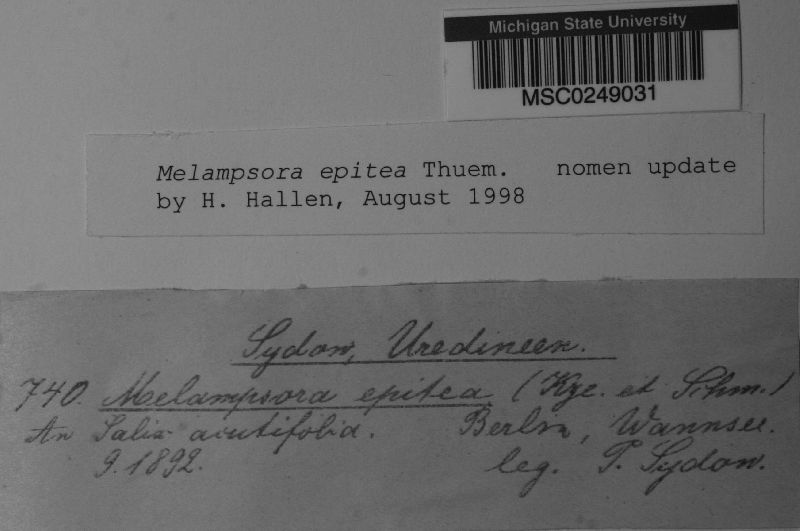 Michigan State University
MSC0249031
Melampsora epitea Thuem. nomen update
by H. Hallen, August 1998
Sydow, Uredineen.
740. Melampsora epitea (Kze. et Schm.)
An Salix acutifolia. Berlin, Wannsee.
9.1892. leg. P. Sydow.